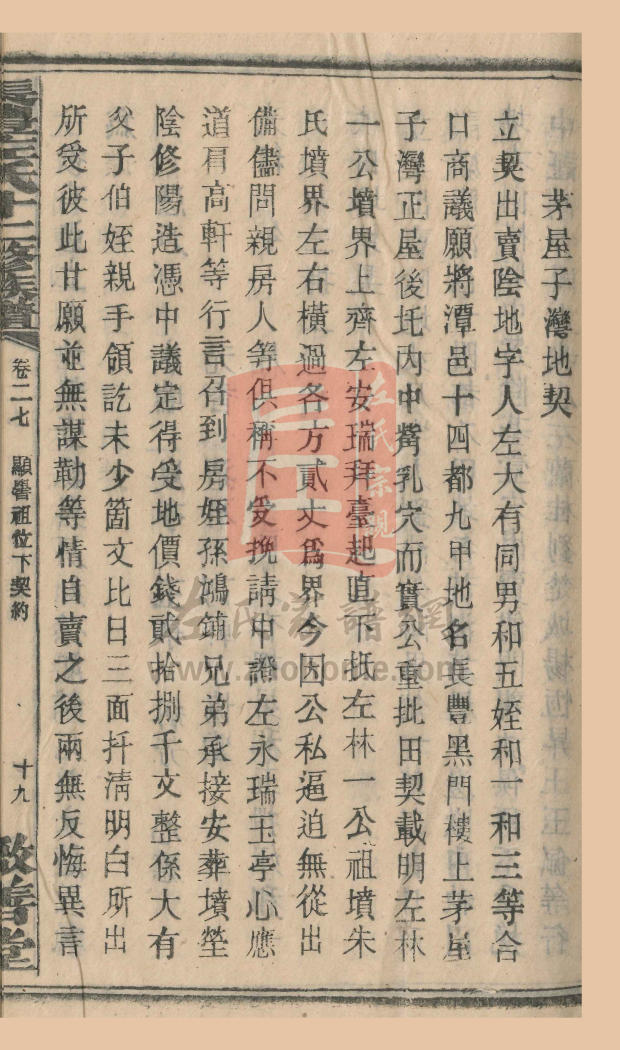 茅屋子灣地契
立契出賣陰地字人左大有同男和五姪和一和三等合
口商議願將潭邑十四都九甲地名長豐黑門樓上茅屋
子灣正屋後坵內中嘴乳穴而實公重批田契載明左林
一公墳界上齊左安瑞拜臺起直下抵左林一公祖墳朱
氏墳界左右橫過各方貳丈爲界今因公私逼迫無從出
備儘問親房人等俱稱不受挽請中證左永瑞玉亭心應
道眉高軒等行言召到房姪孫鴻鋪兄弟承接安葬墳塋
陰修陽造憑中議定得受地價錢貳拾捌千文整係大有
父子伯姪親手領訖未少箇文比日三面扦清明白所出
所受彼此甘願並無謀勒等情自賣之後兩無反悔異言
長豐左氏十二修族譜
卷二七 顯譽祖位下契約 十九 敬善堂
左氏宗親
左氏家譜網